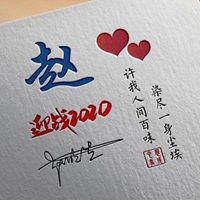 赵
迎战2020
染尽一身尘埃
许我人间百味